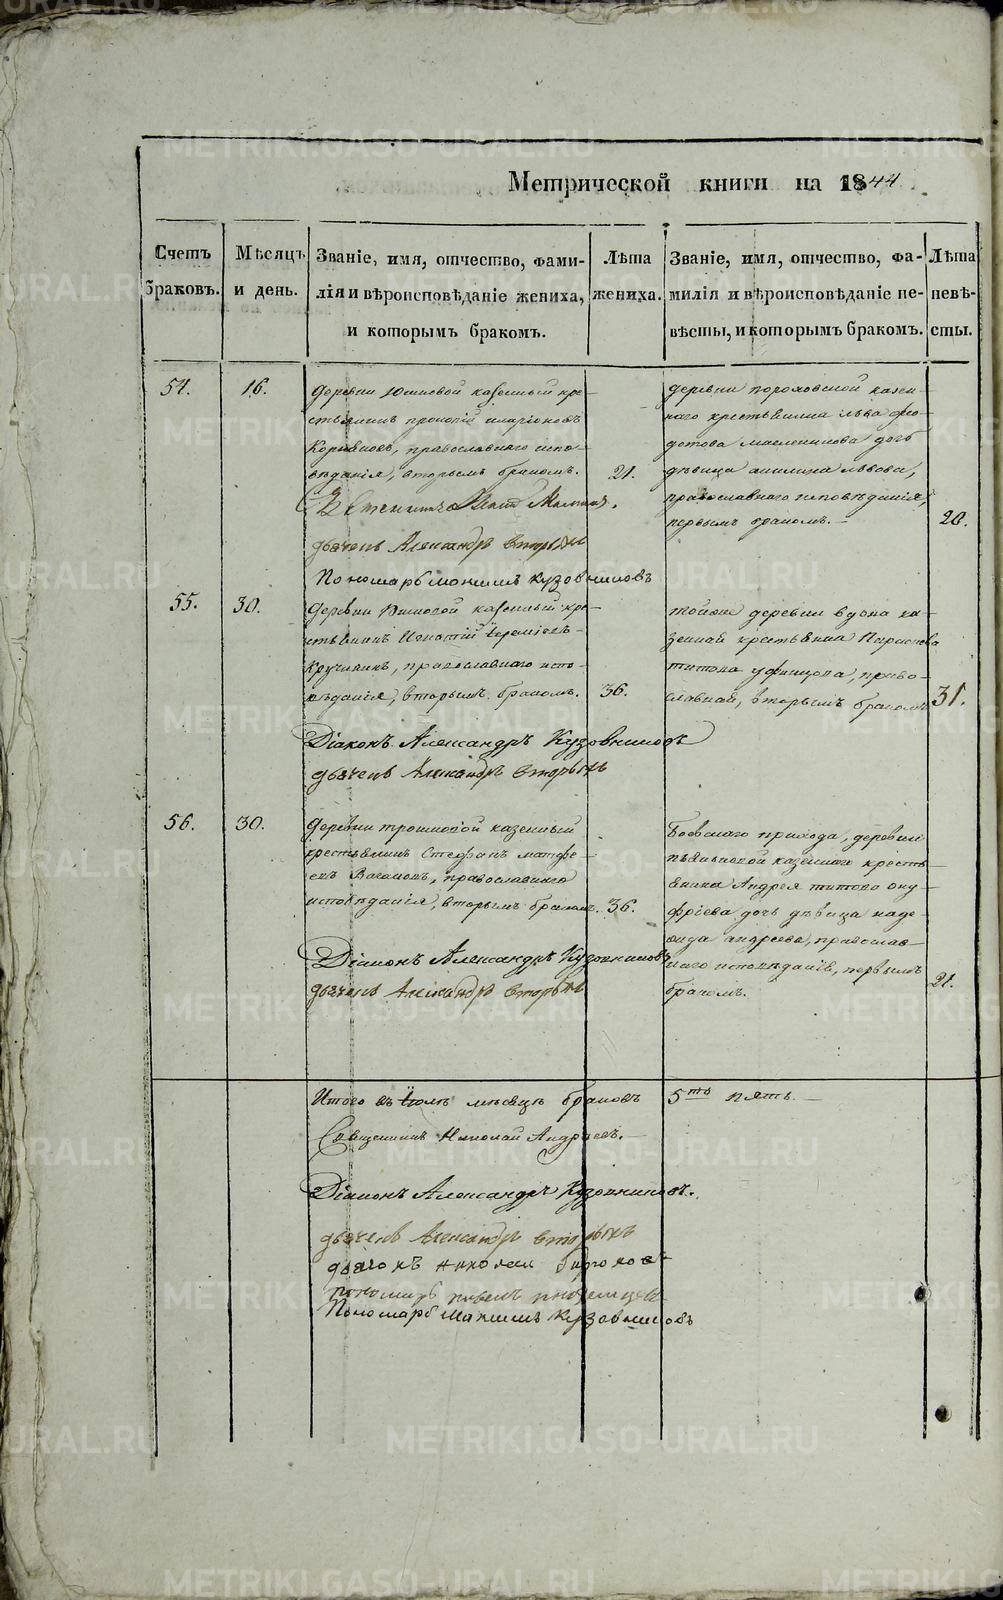 Метрической книги на 1844
Счетъ браковъ.
Мѣсяцъ и день.
Званіе, имя, отчество, фами-
лія и вѣроисповѣданіе жениха,
и которымъ бракомъ.
Лѣта
жениха.
Званіе, имя, отчество, фа-
милія и вѣроисповѣданіе не-
вѣсты, и которымъ бракомъ.
Лѣта
невѣ-
сты.
54. 16.
деревни казенный кре-
стьянинъ
православнаго испо-
вѣданія, вторымъ бракомъ. 21.
дьячекъ Александръ Вторыхъ
Пономарь Максимъ Кузовниковъ
деревни казен-
наго крестьянина льва фео-
дотова масленникова дочь
дѣвица львова,
православнаго исповѣданія,
первымъ бракомъ. 20.
55. 30.
деревни казенный кре-
стьянинъ
православнаго испо-
вѣданія, вторымъ бракомъ. 36.
Діаконъ Александръ Кузовниковъ
дьячекъ Александръ Вторыхъ
тойже деревни вдова ка-
зенная крестьянка
титова уфинцова, право-
славная, вторымъ бракомъ 31.
56. 30.
деревни казенный
крестьянинъ Стефанъ матфе-
евъ православнаго
исповѣданія, вторымъ бракомъ. 36.
Діаконъ Александръ Кузовниковъ
дьячекъ Александръ Вторыхъ
Боевскаго прихода, деревни
казеннаго кресть-
янина Андрея титова ону-
фріева дочь дѣвица наде-
жда андреева, православ-
наго исповѣданія, первымъ
бракомъ. 21.
Итого въ Іюлѣ мѣсяцѣ браковъ 5ть пять.
Священникъ Николай Андреевъ.
Діаконъ Александръ Кузовниковъ.
дьячекъ Александръ Вторыхъ
дьячокъ николай
пономарь павелъ
Пономарь Максимъ Кузовниковъ
METRIKI.GASO-URAL.RU